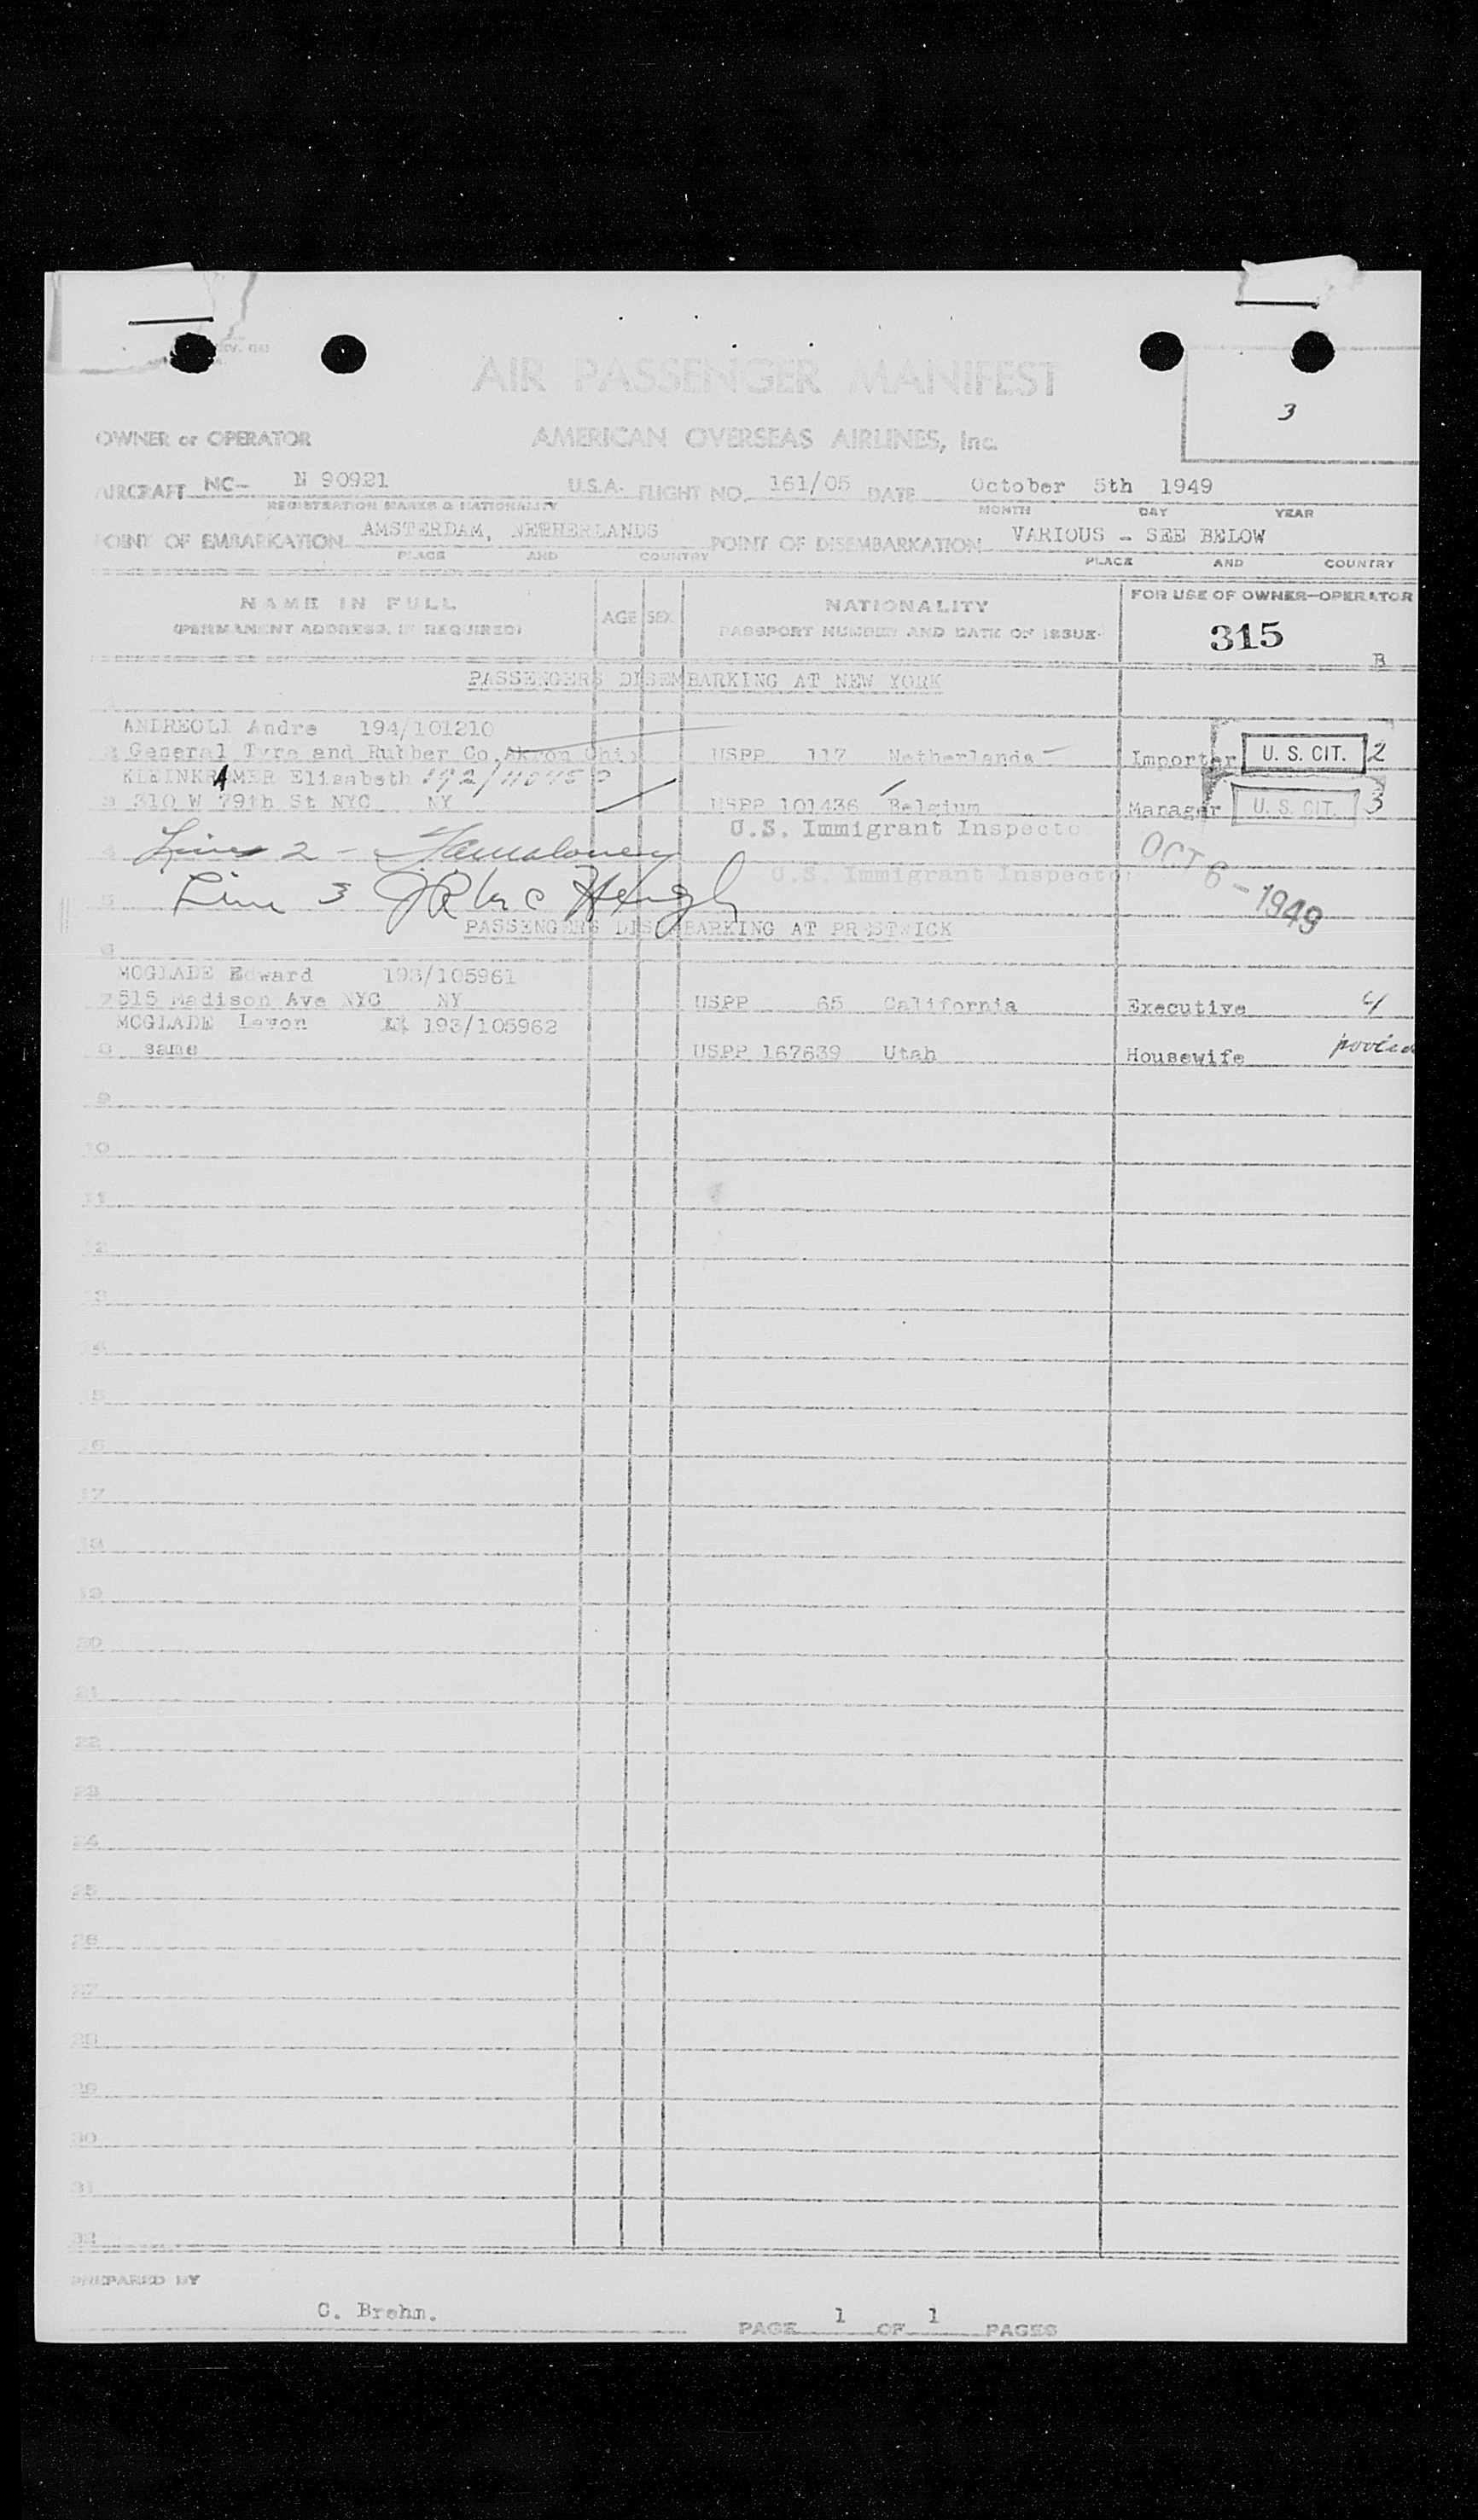 AIR PASSENGER MANIFEST
3
OWNER or OPERATOR AMERICAN OVERSEAS AIRLINES, Inc.
AIRCRAFT NC- N 90921 U.S.A. FLIGHT NO. 161/05 DATE October 5th 1949
REGISTRATION MARKS & NATIONALITY MONTH DAY YEAR
POINT OF EMBARKATION AMSTERDAM, NETHERLANDS POINT OF DISEMBARKATION VARIOUS - SEE BELOW
PLACE AND COUNTRY PLACE AND COUNTRY
NAME IN FULL AGE SEX NATIONALITY FOR USE OF OWNER-OPERATOR
(PERMANENT ADDRESS, IF REQUIRED) PASSPORT NUMBER AND DATE OF ISSUE
315
B
PASSENGERS DISEMBARKING AT NEW YORK
ANDREOLI Andre 194/101210
2 General Tyre and Rubber Co. Akron Ohio USPP 117 Netherlands Importer U. S. CIT. 2
KLEINKRAMER Elisabeth
3 310 W 79th St NYC NY USPP 101436 Belgium Manager U. S. CIT. 3
U.S. Immigrant Inspecto
4 Line 2 -
U.S. Immigrant Inspector
OCT 6 - 1949
5 Line 3
PASSENGERS DISEMBARKING AT PRESTWICK
6
MCGLADE Edward 193/105961
7 515 Madison Ave NYC NY USPP 65 California Executive 4
MCGLADE Levon 193/105962
8 same USPP 167639 Utah Housewife
9
10
11
12
13
14
15
16
17
18
19
20
21
22
23
24
25
26
27
28
29
30
31
32
PREPARED BY
C. Brehm.
PAGE 1 OF 1 PAGES